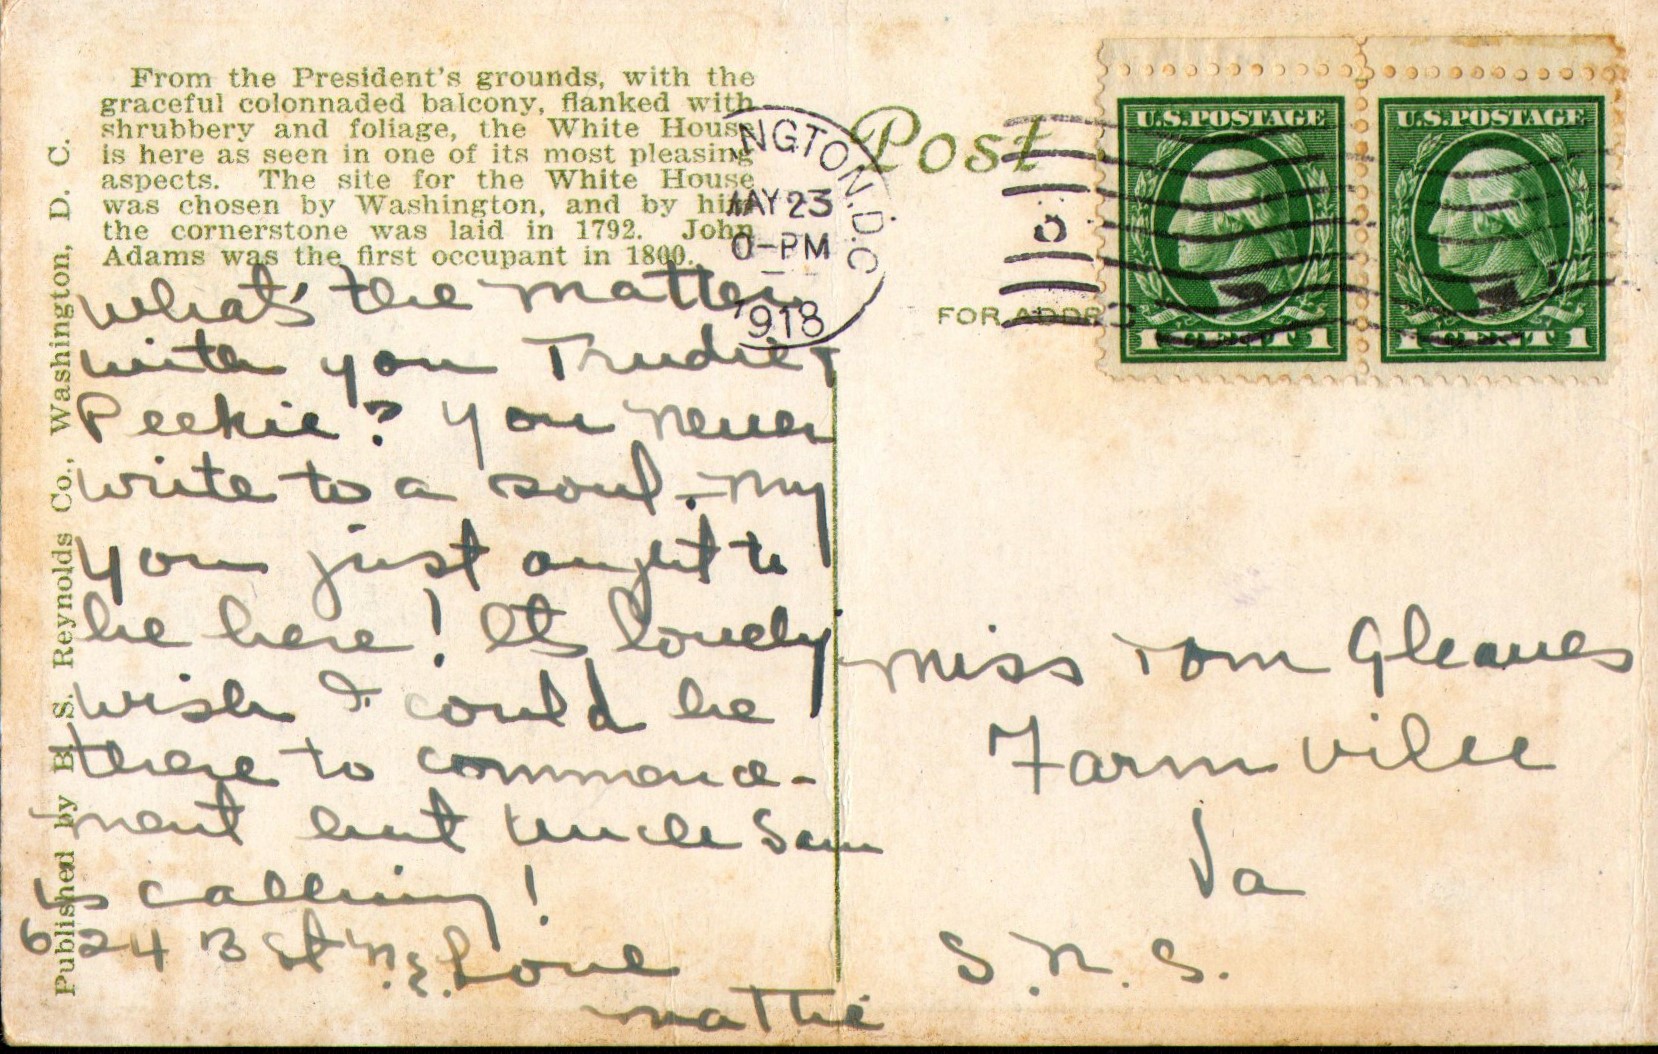 From the President's grounds, with the
graceful colonnaded balcony, flanked with
shrubbery and foliage, the White House
is here as seen in one of its most pleasing
aspects. The site for the White House
was chosen by Washington, and by him
the cornerstone was laid in 1792. John
Adams was the first occupant in 1800.
Published by B. S. Reynolds Co., Washington, D. C.
NGTON, D.C
MAY 23
0-PM
1918
Post
FOR ADDR
U.S. POSTAGE
1 CENT 1
U.S. POSTAGE
1 CENT 1
What's the matter
with you Trudie &
Peekie? You never
write to a soul. – My
you just ought to
be here! Its lovely
wish I could be
there to commence-
ment but Uncle Sam
is calling!
624 B St N.E. Love
Mattie
Miss Tom Gleaves
Farmville
Va
S. N. S.